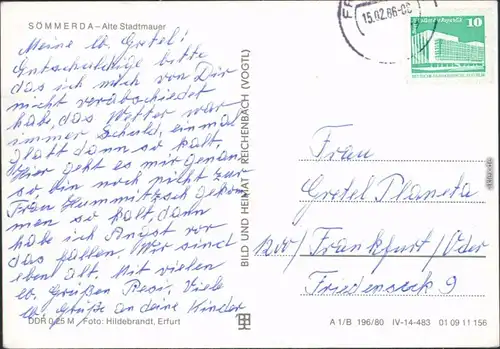 SÖMMERDA – Alte Stadtmauer
Meine lb. Gretel!
Entschuldige bitte
das ich mich von Dir
nicht verabschiedet
habe, das Wetter war
immer Schuld, einmal
glatt dann so kalt,
Hier geht es mir genau
so bin noch nicht zur
Frau Hummitzsch gekom
men so kalt, dann
habe ich Angst vor
das fallen. Wir sind
eben alt. Mit vielen
lb. Grüßen Resi. Viele
lb. Grüße an deine Kinder
DDR 0,25 M / Foto: Hildebrandt, Erfurt
BILD UND HEIMAT REICHENBACH (VOGTL)
15.02.86
10
Frau
Gretel Planeta
Frankfurt/Oder
Friedenseck 9
A 1/B 196/80 IV-14-483 01 09 11 156